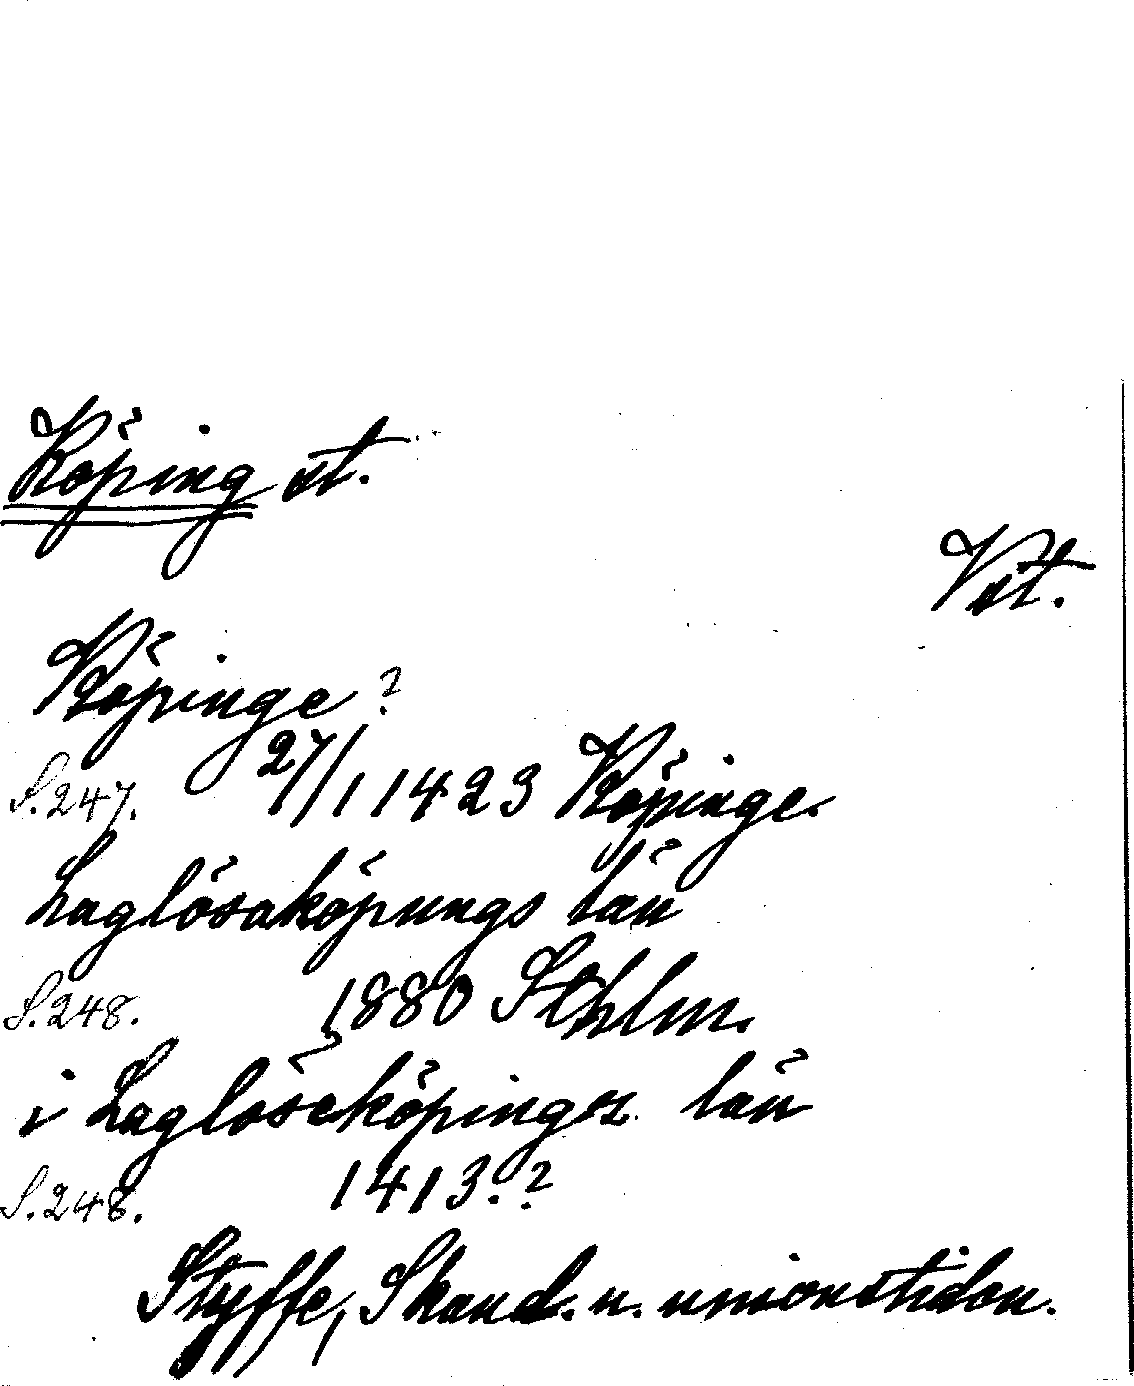 Köping st.
Vst.
Köpinge?
S. 247. 27/1 1423 Köpinge.
Laglösaköpungs län
S. 248. 1880 Sthlm.
i Laglöseköpinges län
S. 248. 1413.?
Styffe, Skand. u. unionstiden.